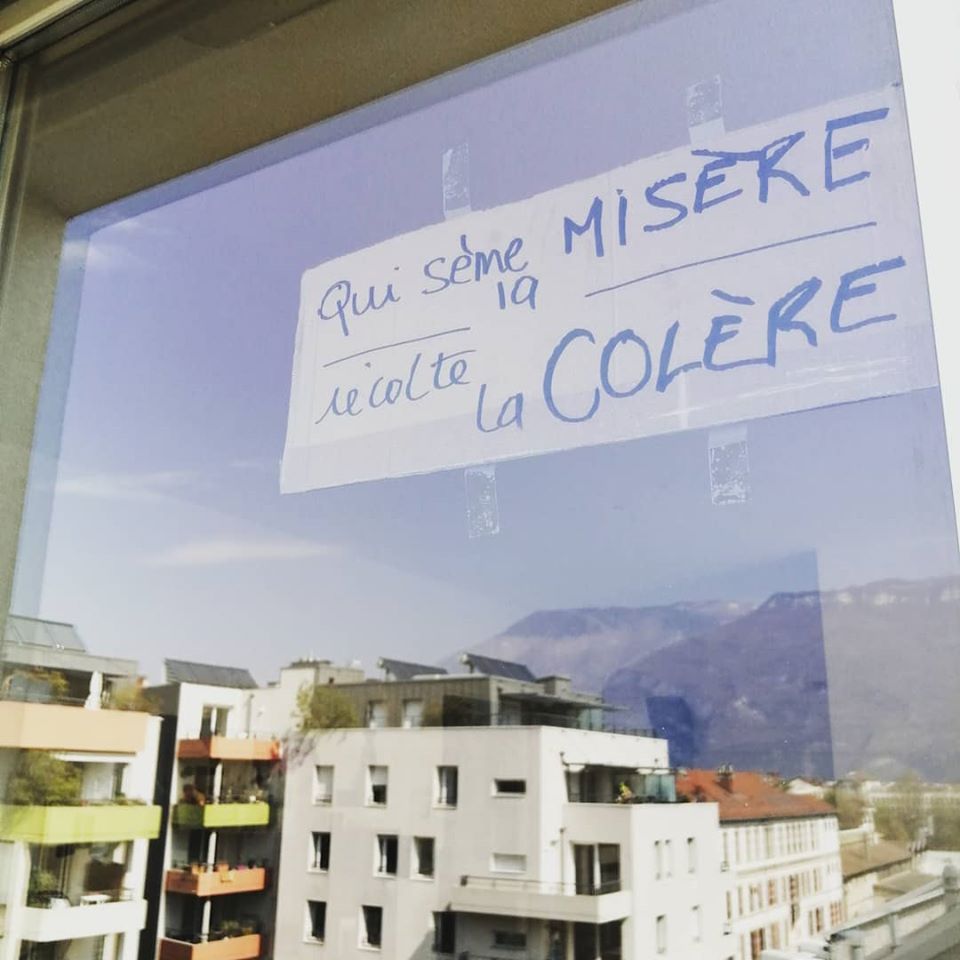 Qui sème la MiSÈRE
récolte la COLÈRE